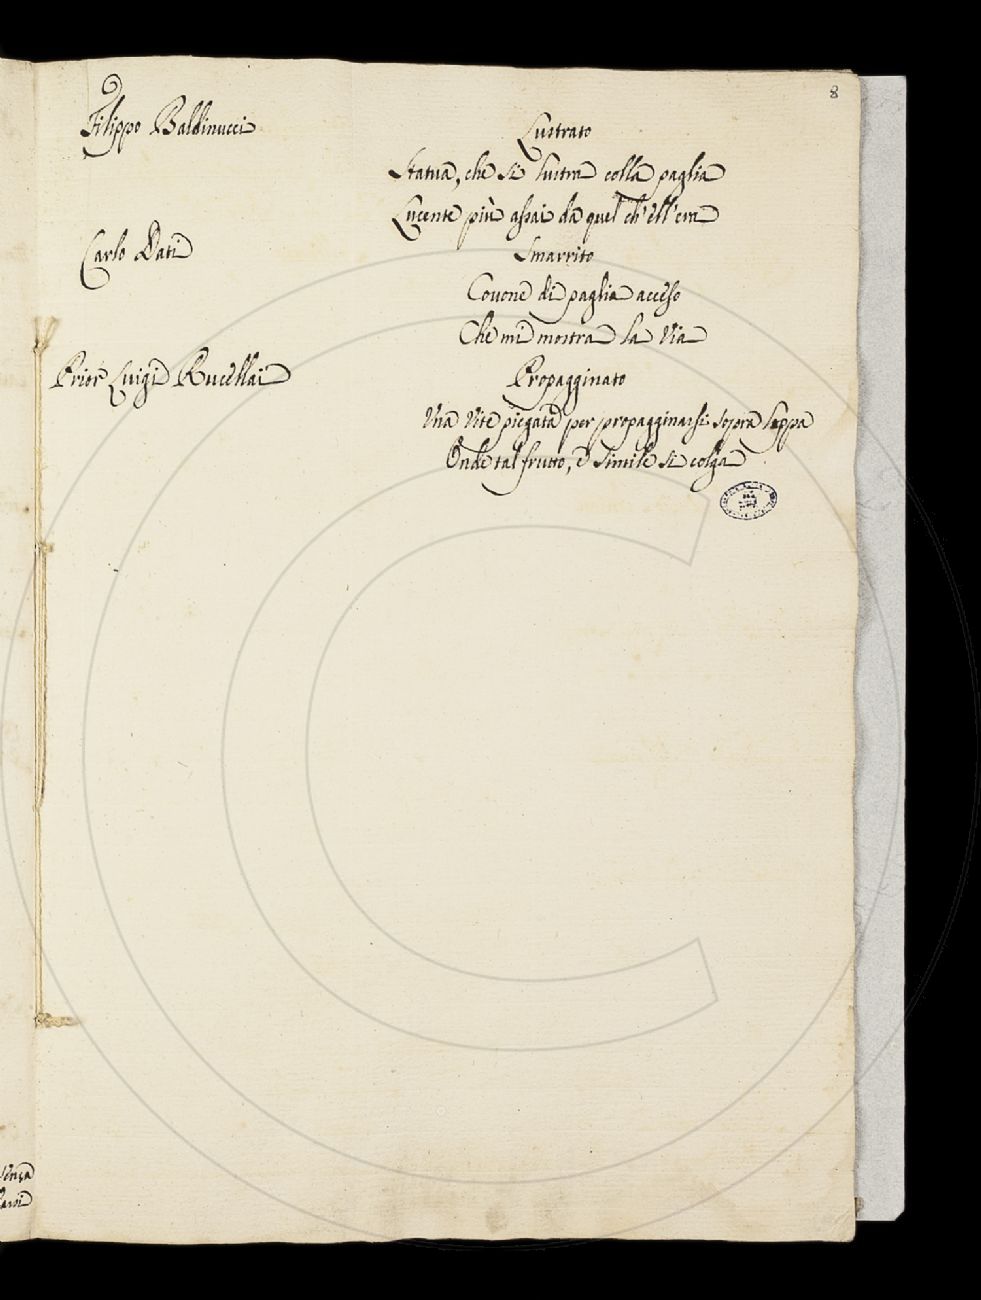 8
Filippo Baldinucci
Lustrato
Statua, che si lustra colla paglia
Lucente più assai da quel ch'ell'era
Carlo Dati
Smarrito
Covone di paglia acceso
Che mi mostra la Via
Prior Luigi Rucellai
Propagginato
Una Vite piegata per propagginarsi sopra
Onde tal frutto, e simile si colga